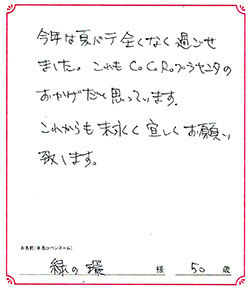 今年は夏バテ全くなく過ごせ
ました。これもCoCoRoプラセンタの
おかげだと思っています。
これからも末永く宜しくお願い
致します。
お名前(本名orペンネーム)
緑の環 様 50 歳